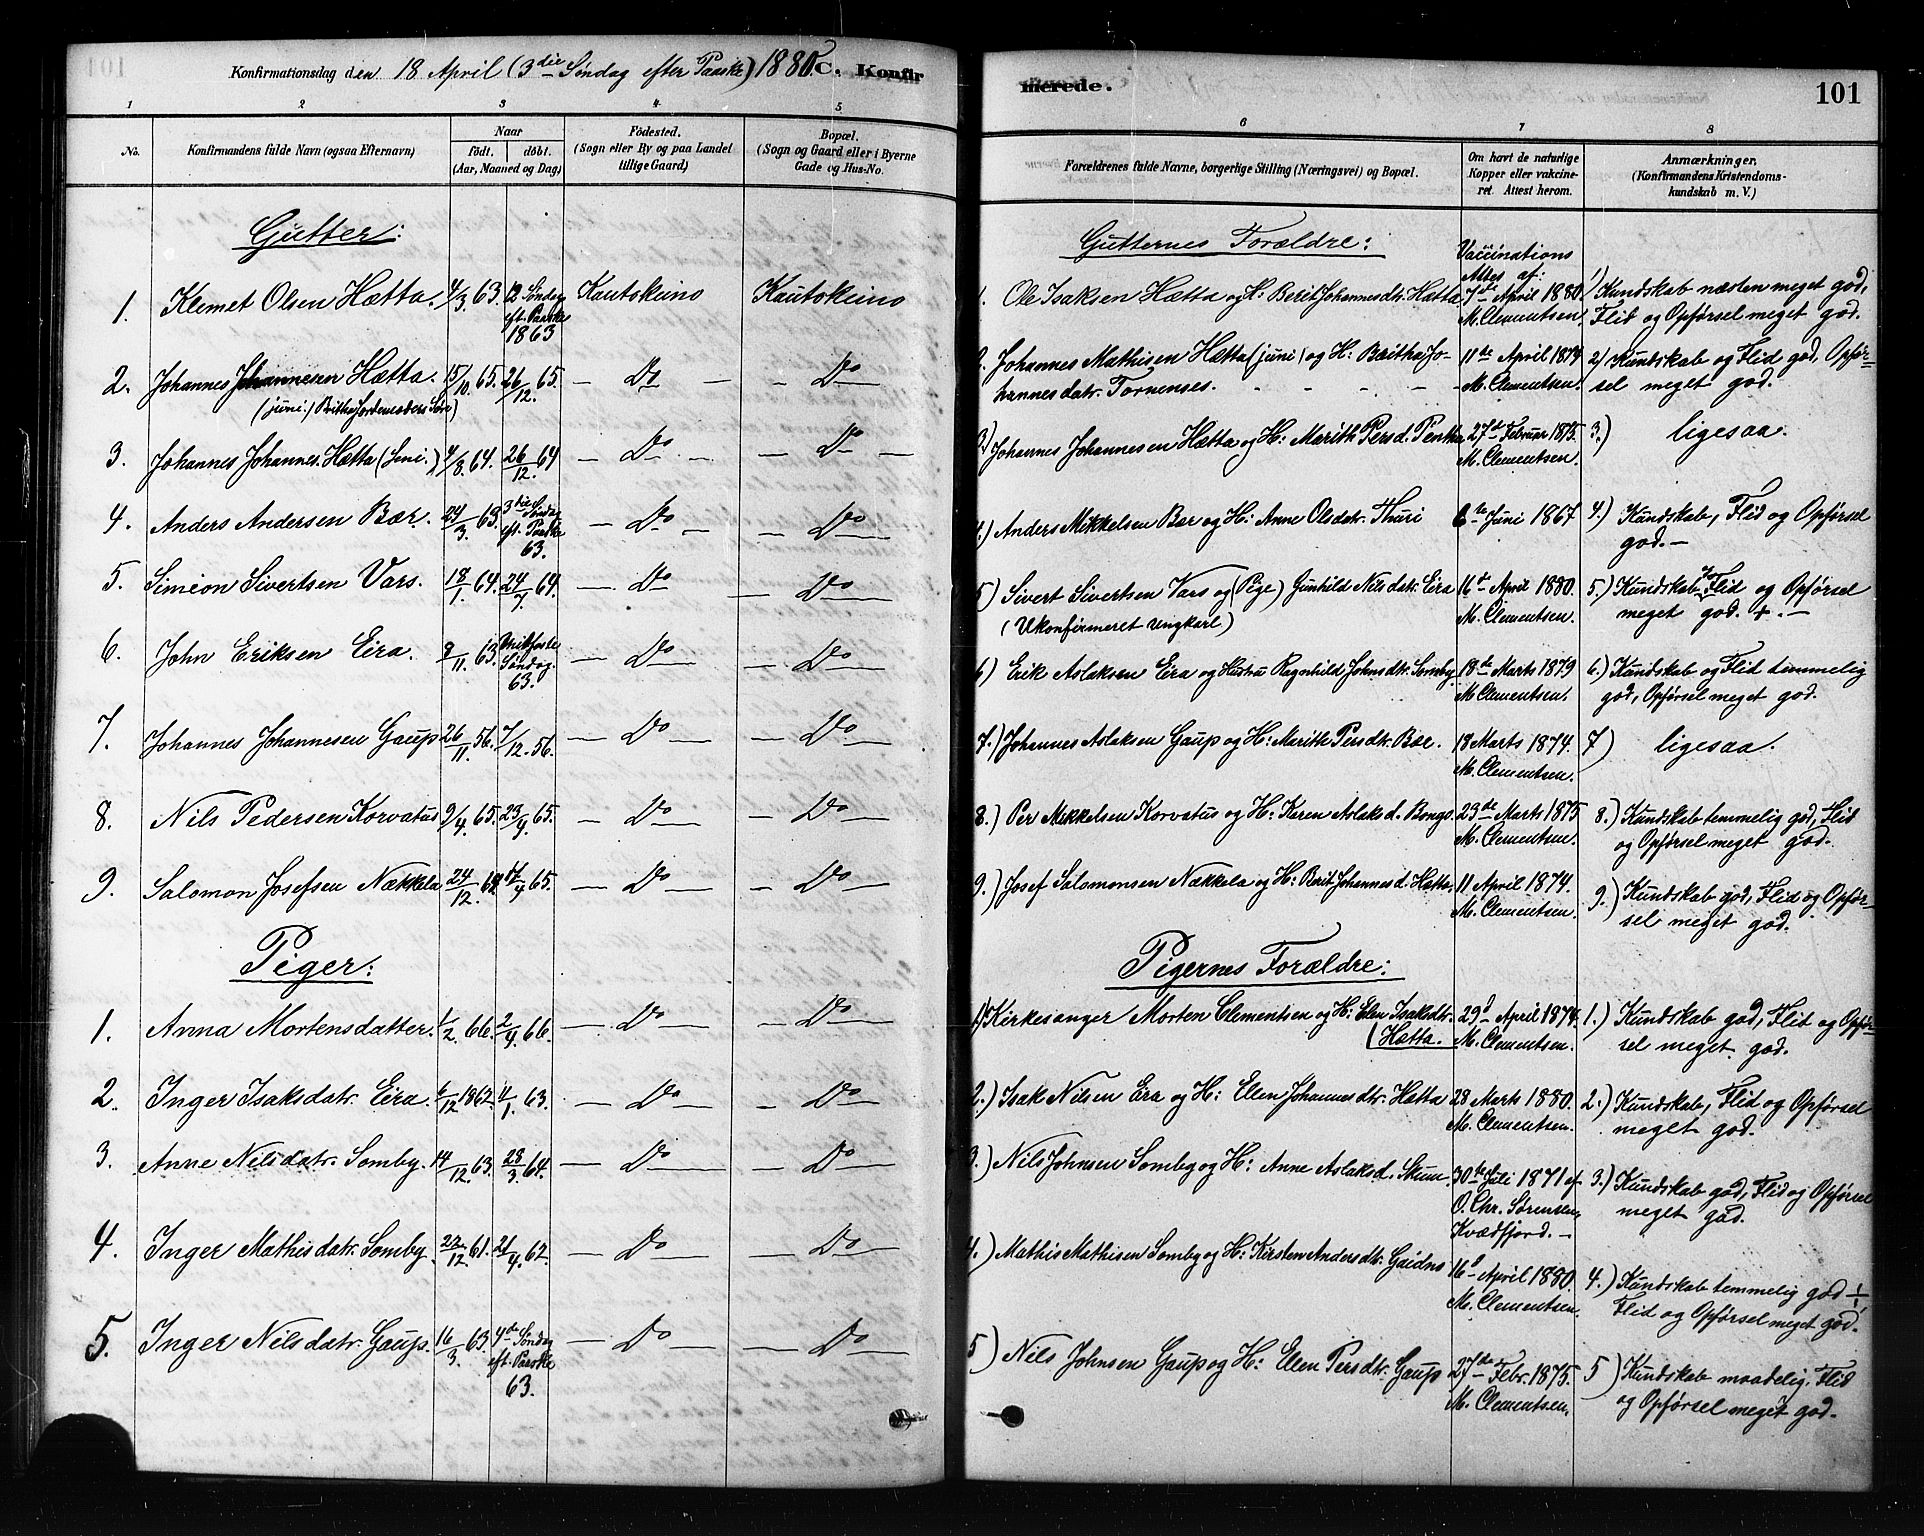 Konfirmationsdag den 18 April (3die Søndag efter Paaske) 1880. C. Konfir
1 2 3 4 5
No. Konfirmandens fulde Navn (ogsaa Efternavn)
Naar
født. døbt.
(Aar, Maaned og Dag)
Fødested.
(Sogn eller By og paa Landet
tillige Gaard)
Bopæl.
(Sogn og Gaard eller i Byerne
Gade og Hus-No.
Gutter:
1. Klemet Olsen Hætta. 4/3 63. 12 Søndag Kautokeino Kautokeino
eft. Paaske
1863
2. Johannes Johannesen Hætta. 15/10 65. 26/12 65. — Do — — Do
(juni.)
3. Johannes Johannes. Hætta (Seni.) 4/8 64. 26/12 64 — Do — — Do —
4. Anders Andersen Bær. 24/3 63. 3die Søndag — Do — — Do —
eft. Paaske
63.
5. Simeon Sivertsen Vars. 18/1 64. 24/7 64. — Do — Do —
6. John Eriksen Eira. 8/11 63. Midtfaste — Do — — Do —
Søndag
63.
7. Johannes Johannesen Gaup 26/11 56. 7/12 56. — Do — — Do —
8. Nils Pedersen Korvatus 9/4 65. 23/4 65. — Do — — Do —
9. Salomon Josefsen Nækkela 24/12 64. 17/4 65. — Do — — Do —
Piger:
1. Anna Mortensdatter. 1/2 66. 2/4 66. — Do — — Do —
2. Inger Isaksdatr. Eira. 6/12 1862. 11/1 63. — Do — — Do —
3. Anne Nilsdatr. Somby. 14/12 63. 28/3 64. — Do — — Do —
4. Inger Mathisdatr. Somby. 22/12 61. 21/4 62. — Do — — Do —
5. Inger Nilsdatr. Gaup. 16/3 63. 4de Søndag — Do — — Do —
eft. Paaske
63.
merede. 101
6 7 8
Forældrenes fulde Navne, borgerlige Stilling (Næringsvei) og Bopæl.
Om havt de naturlige
Kopper eller vakcine-
ret. Attest herom.
Anmærkninger.
(Konfirmandens Kristendoms-
kundskab m. V.)
Gutternes Forældre:
Vaccinations
Attes af:
1. Ole Isaksen Hætta og H. Berit Johannesdtr. Hætta. 7de April 1880. 1) Kundskab næsten meget god,
M. Clementsen. Flid og Opførsel meget god.
2. Johannes Mathisen Hætta (juni) og H: Britha Jo- 11te April 1874 2) Kundskab og Flid god, Opfør-
hannesdatr. Tornenses. M. Clementsen. sel meget god.
3) Johannes Johannesen Hætta og H: Marith Persd. Pentha 27de Februar 1875. 3.) ligesaa.
M. Clementsen.
4.) Anders Mikkelsen Bær og H: Anne Olsdatr. Thuri 6te Juni 1867. 4.) Kundskab, Flid og Opførsel
god. —
5) Sivert Sivertsen Vars og (Pige) Gunhild Nilsdatr. Eira 16de April 1880. 5.) Kundskab, Flid og Opførsel
(Ukonfirmeret Ungkarl) M. Clementsen. meget god. +. —
6) Erik Aslaksen Eira og Hustru Ragnhild Johnsdtr. Somby. 18de Marts 1879 6.) Kundskab og Flid temmelig
M. Clementsen. god, Opførsel meget god.
7.) Johannes Aslaksen Gaup og H: Marith Persdtr. Bær. 18 Marts 1874. 7) ligesaa.
M. Clementsen.
8.) Per Mikkelsen Korvatus og H: Karen Aslaksd. Bongo. 23de Marts 1875 8.) Kundskab temmelig god, Flid
M. Clementsen. og Opførsel meget god.
9.) Josef Salomonsen Nækkela og H: Berit Johannesd. Hætta. 11 April 1874. 9.) Kundskab god, Flid og Opfør-
M. Clementsen. sel meget god.
Pigernes Forældre:
1) Kirkesanger Morten Clementsen og H: Elen Isaksdtr. 29d April 1874. 1.) Kundskab god, Flid og Opfør-
(Hætta. M. Clementsen. sel meget god.
2.) Isak Nilsen Eira og H: Ellen Johannesdtr. Hætta 28 Marts 1880. 2.) Kundskab, Flid og Opførsel
M. Clementsen. meget god.
3.) Nils Johnsen Somby og H: Anne Aslaksd. Skum. 30te Juli 1871 af 3.) Kundskab god, Flid og Opførsel
O. Chr. Sørensen, meget god.
Kvædfjord. —
4.) Mathis Mathisen Somby og H: Kirsten Andersdtr. Gaidno 16d April 1880. 4.) Kundskab temmelig god ÷
M. Clementsen. Flid og Opførsel meget god.
5) Nils Johnsen Gaup og H: Elen Persdtr. Gaup 27de Febr. 1875. 5) Kundskab maadelig, Flid
M. Clementsen. og Opførsel meget god.